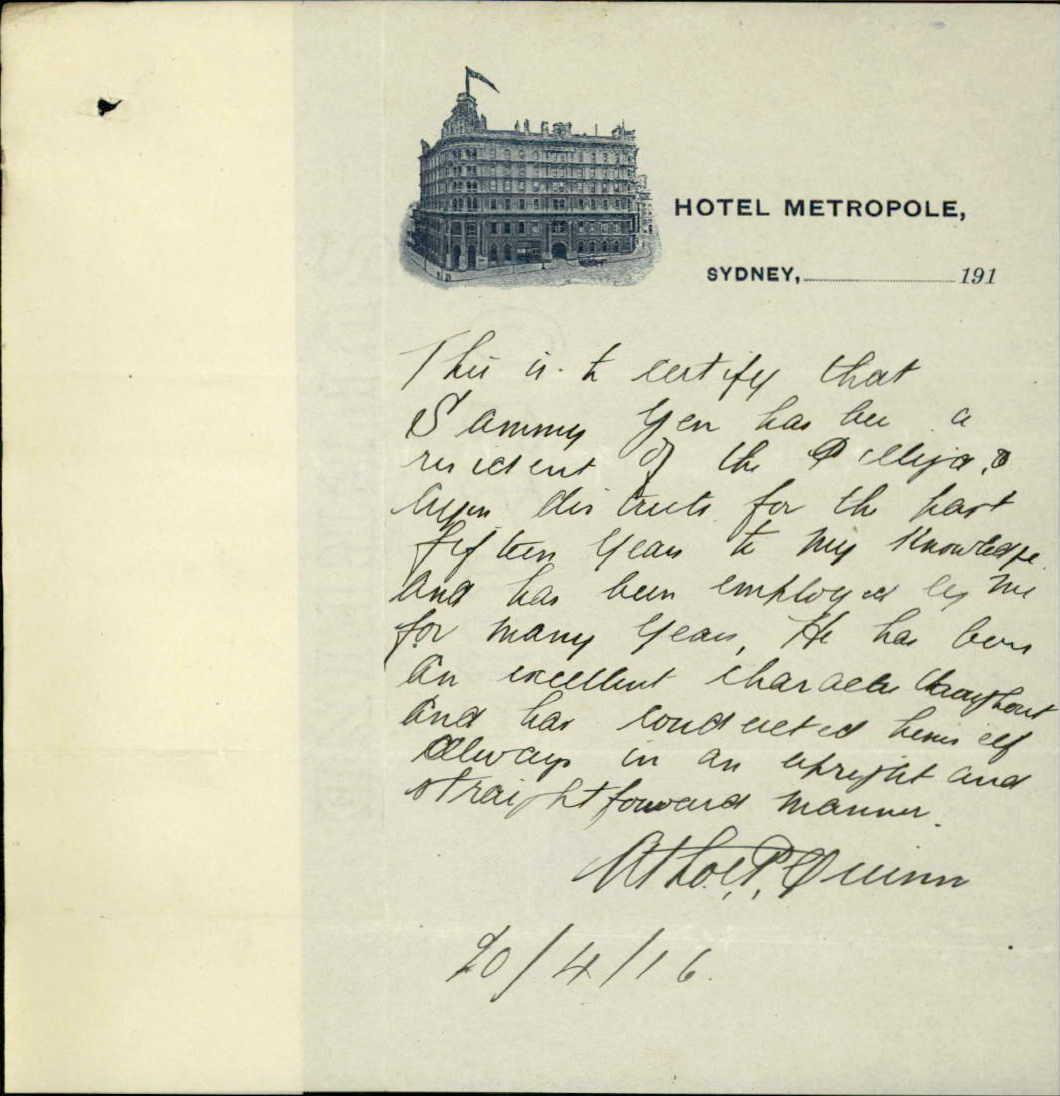 HOTEL METROPOLE,
SYDNEY, 191
This is to certify that
Sammy Yen has been a
resident of the Pilliga &
districts for the past
fifteen years to my knowledge
and has been employed by me
for many years, He has been
an excellent character throughout
and has conducted himself
always in an upright and
straightforward manner.
Athol P. Quinn
20/4/16.